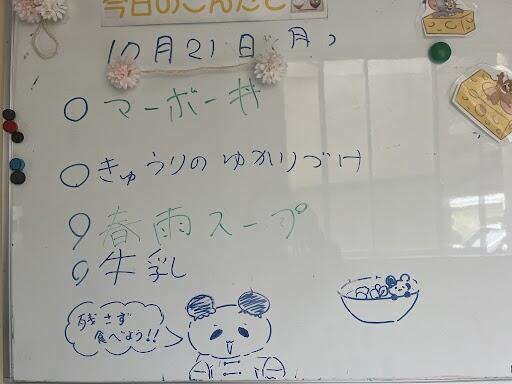 今日のこんだて
10月21日(月)
○マーボー丼
○きゅうりのゆかりづけ
○春雨スープ
○牛乳
残さず
食べよう!!